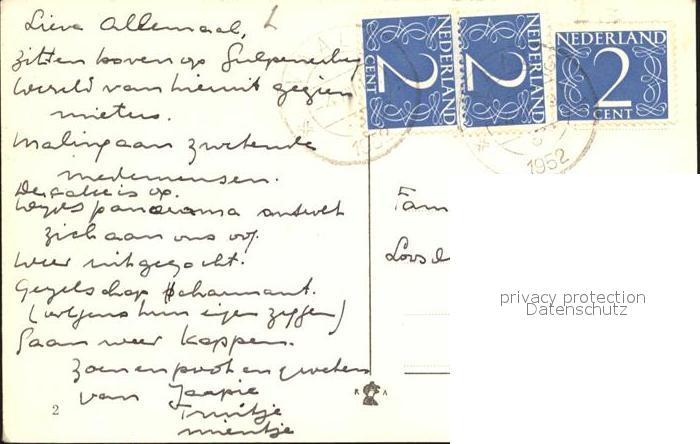 Lieve Allemaal,
zitten boven op Gulpenerberg
Wereld van hieruit gezien
mieters.
Maling aan zwetende
medemensen.
De cake is op.
Weyds panorama ontvelt
zich aan ons oog.
Weer uitgezocht.
Gezelschap scharmant.
(volgens hun eigen zeggen)
Gaan weer kappen.
Zoenen poot en groeten
van Jaapie
Truitje
mientje
2
NEDERLAND
2
CENT
NEDERLAND
2
NEDERLAND
2
CENT
1952
1952
Fam
Loosd
R A
privacy protection
Datenschutz